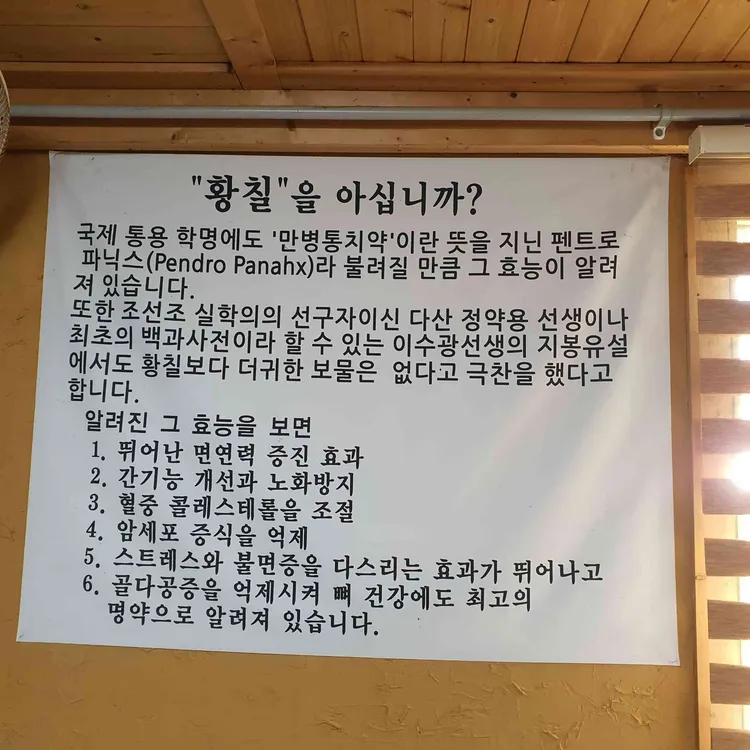 "황칠"을 아십니까?
국제 통용 학명에도 '만병통치약'이란 뜻을 지닌 펜트로
파닉스(Pendro Panahx)라 불려질 만큼 그 효능이 알려
져 있습니다.
또한 조선조 실학의의 선구자이신 다산 정약용 선생이나
최초의 백과사전이라 할 수 있는 이수광선생의 지봉유설
에서도 황칠보다 더귀한 보물은 없다고 극찬을 했다고
합니다.
알려진 그 효능을 보면
1. 뛰어난 면연력 증진 효과
2. 간기능 개선과 노화방지
3. 혈중 콜레스테롤을 조절
4. 암세포 증식을 억제
5. 스트레스와 불면증을 다스리는 효과가 뛰어나고
6. 골다공증을 억제시켜 뼈 건강에도 최고의
명약으로 알려져 있습니다.